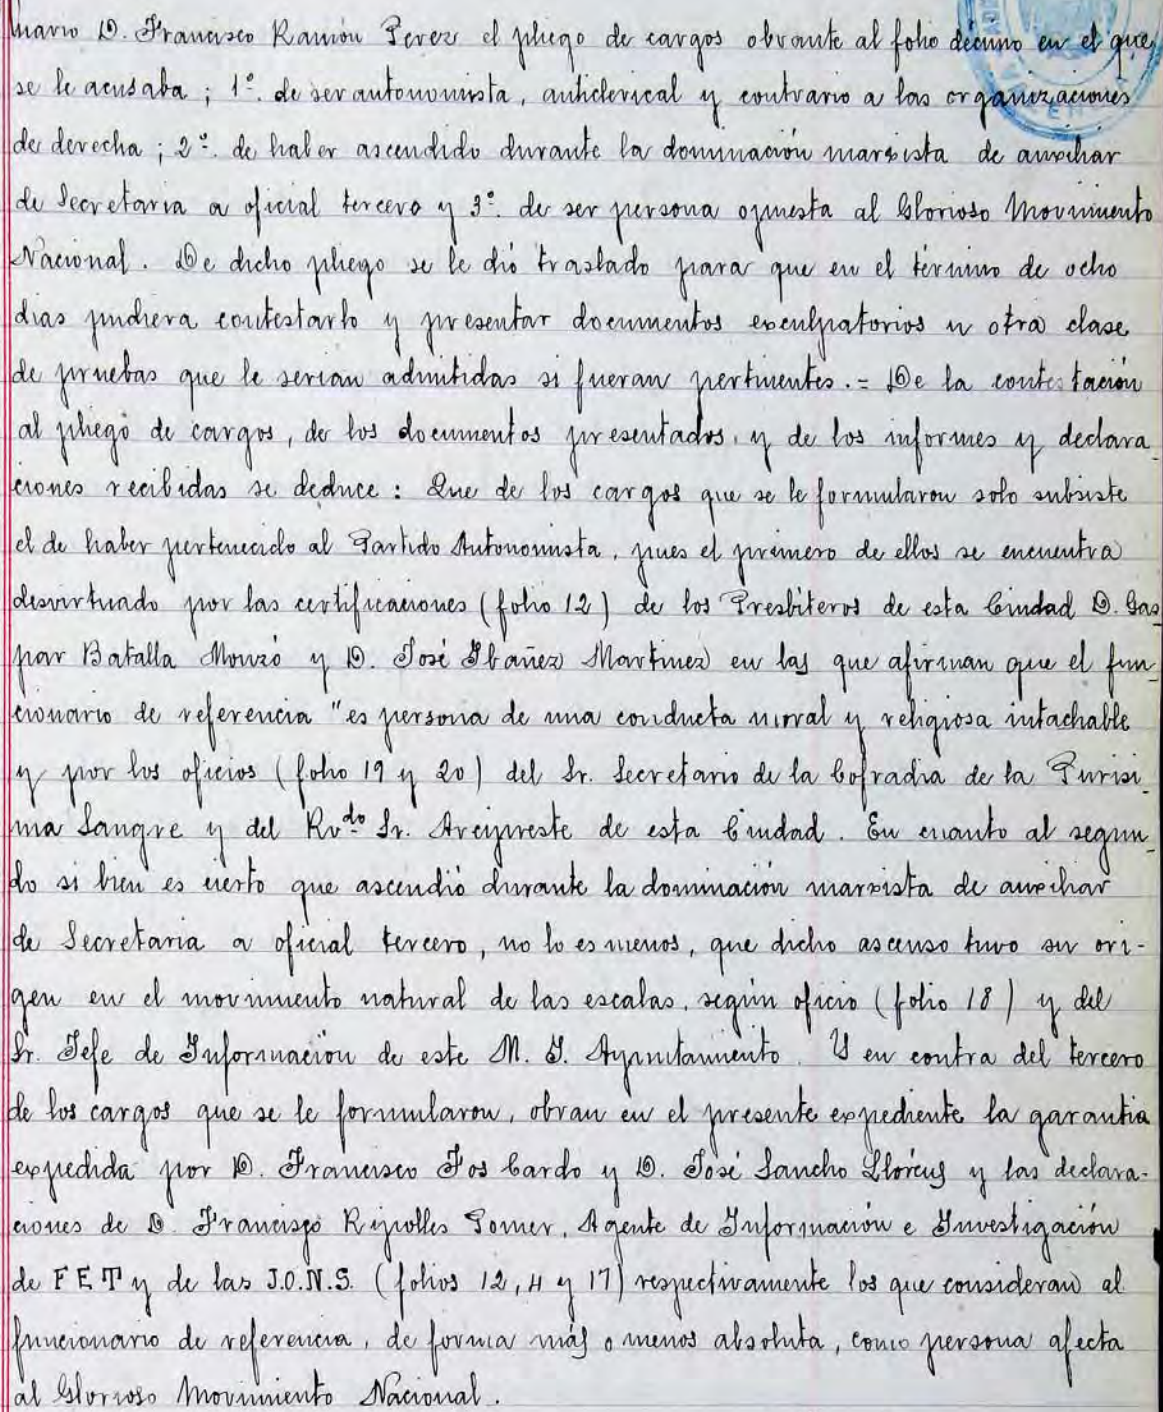 nario D. Francisco Ramón Perez el pliego de cargos obrante al folio décimo en el que
se le acusaba ; 1º. de ser autonomista, anticlerical y contrario a las organizaciones
de derecha ; 2º. de haber ascendido durante la dominación marxista de auxiliar
de Secretaria a oficial tercero y 3º. de ser persona opuesta al Glorioso Movimiento
Nacional. De dicho pliego se le dió traslado para que en el término de ocho
dias pudiera contestarlo y presentar documentos exculpatorios u otra clase
de pruebas que le serian admitidas si fueran pertinentes. = De la contestación
al pliego de cargos, de los documentos presentados, y de los informes y declara_
ciones recibidas se deduce : Que de los cargos que se le formularon solo subsiste
el de haber pertenecido al Partido Autonomista, pues el primero de ellos se encuentra
desvirtuado por las certificaciones (folio 12) de los Presbiteros de esta Ciudad D. Gas_
par Batalla Monzó y D. José Ibañez Martinez en las que afirman que el fun_
cionario de referencia "es persona de una conducta moral y religiosa intachable
y por los oficios (folio 19 y 20) del Sr. Secretario de la Cofradia de la Purisi_
ma Sangre y del Rvdo Sr. Arcipreste de esta Ciudad. En cuanto al segun_
do si bien es cierto que ascendió durante la dominación marxista de auxiliar
de Secretaria a oficial tercero, no lo es menos, que dicho ascenso tuvo su ori-
gen en el movimiento natural de las escalas, según oficio (folio 18) y del
Sr. Jefe de Información de este M. I. Ayuntamiento. Y en contra del tercero
de los cargos que se le formularon, obran en el presente expediente la garantia
expedida por D. Francisco Fos Cardo y D. José Sancho Llorens y las declara-
ciones de D. Francisco Ripolles Gomer, Agente de Información e Investigación
de F E T y de las J.O.N.S. (folios 12, 4 y 17) respectivamente los que consideran al
funcionario de referencia, de forma más o menos absoluta, como persona afecta
al Glorioso Movimiento Nacional.